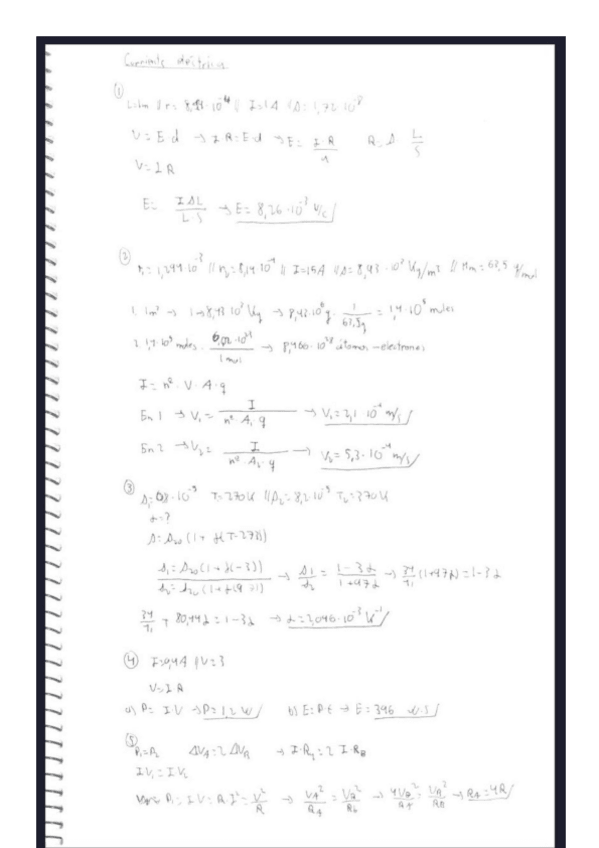 Corriente eléctrica
①
I=1A // ρ=1,72·10⁻⁸
V=E·d → I·R=E·d → E= I·R/d R=ρ L/S
V=I·R
E= IρL/L·S → E=8,26·10⁻³ V/C
②
r₁=1,299·10⁻³ // r₂=8,14·10⁻⁴ // I=15A // ρ=8,93·10³ Kg/m³ // Mm=63,5 g/mol
1. 1m³ → 1→8,93·10³ Kg → 8,93·10⁶g · 1/63,5g = 1,4·10⁵ moles
2. 1,4·10⁵ moles · 6,02·10²³/1mol → 8,466·10²⁸ átomos-electrones
I= nº·V·A·q
En 1 → V₁= I/nº·A₁·q → V₁=2,1·10⁻⁴ m/s
En 2 → V₂= I/nº·A₂·q → V₂=5,3·10⁻⁴ m/s
③
T₁=270K // ρ₂=8,2·10⁻⁹ T₂=370K
α=?
ρ=ρ₂₀(1+α(T-273))
ρ₁=ρ₂₀(1+α(-3))/ρ₂=ρ₂₀(1+α(97)) → ρ₁/ρ₂ = 1-3α/1+97α → 34/41(1+97α)=1-3α
34/41 + 80,44α=1-3α → α=2,046·10⁻³ K⁻¹
④ I=0,4A // V=3
V=I·R
a) P=I·V → P=1,2 W b) E=P·t → E=396 W·s
⑤
P₁=P₂ ΔV_A=2ΔV_B → I·R_A=2 I·R_B
IV₁=IV₂
P₁=I·V=R·I²=V²/R → V_A²/R_A=V_B²/R_B → 4V_B²/R_A=V_B²/R_B → R_A=4R